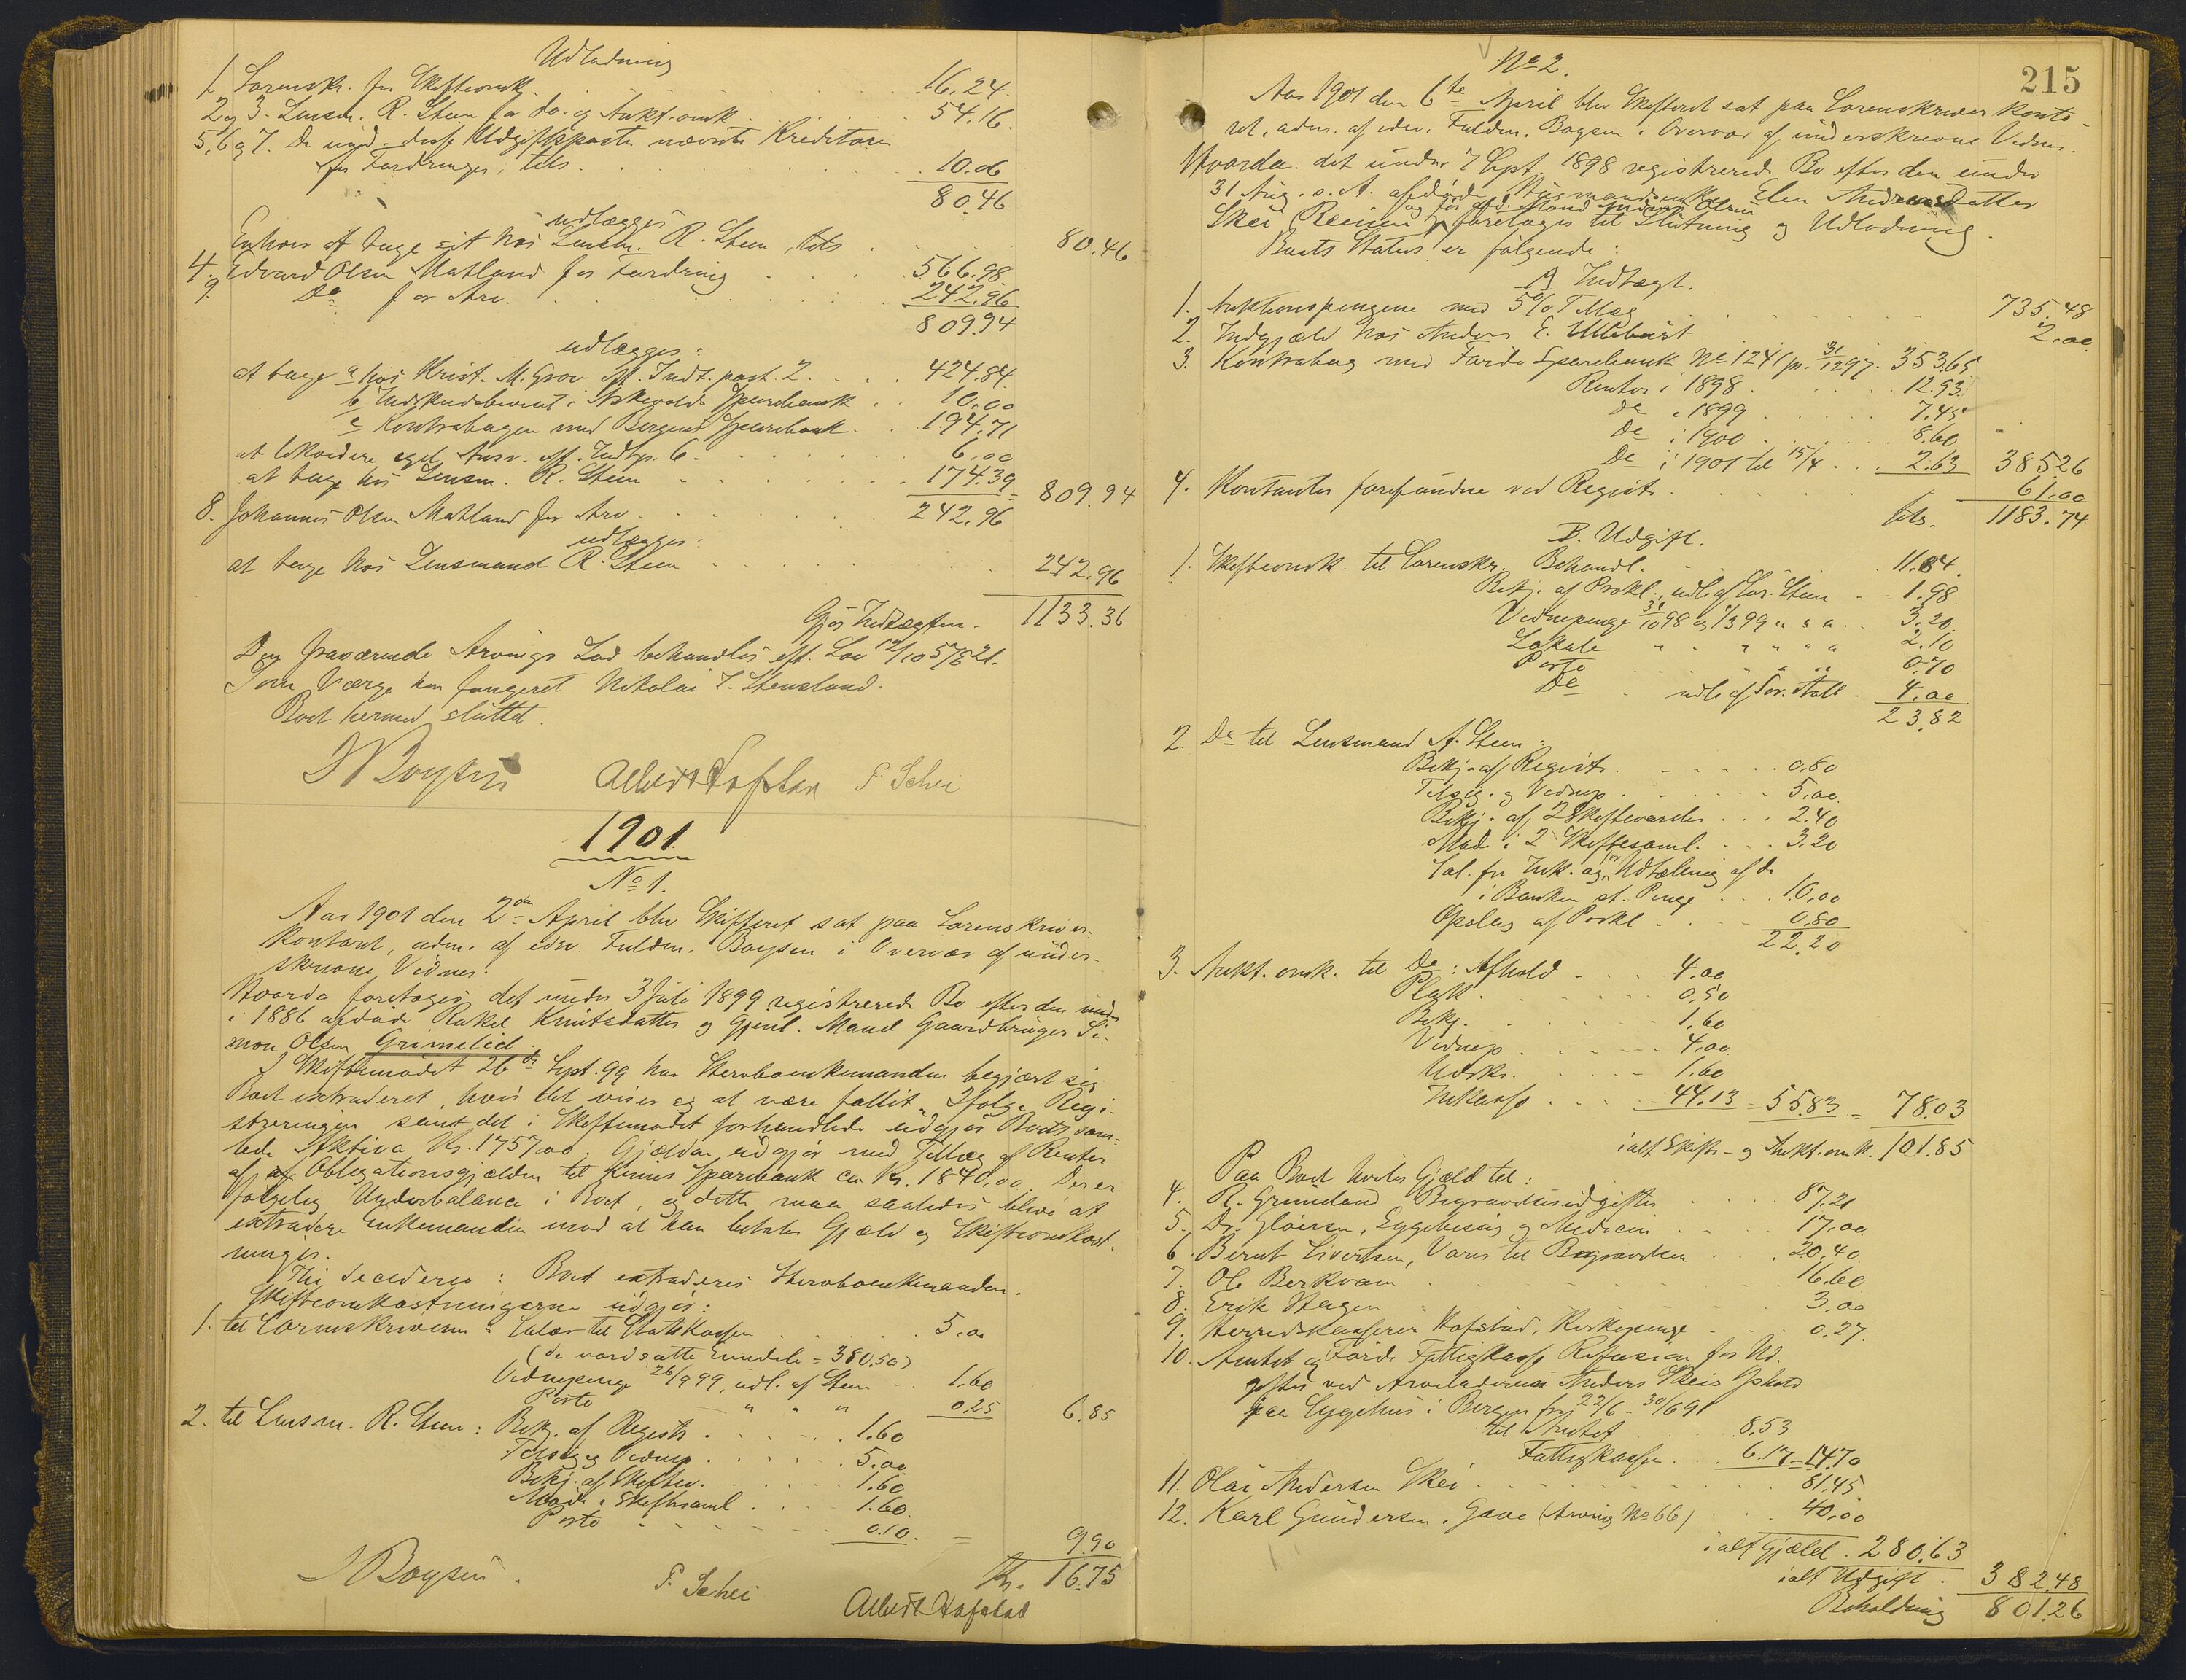 Udlodning
1 Sorenskr. for Skifteomk. 16.24.
2 og 3. Lensm. R. Steen for Do. og Aukt.omk. 54.16.
5, 6 og 7. De und. disse Udgiftsposter nævnte Kreditorer
for Fordringer, tils. 10.06
80.46
udlægges
Enhver at tage sit hos Lensm. R. Steen, tils 80.46
4. Edvard Olsen Matland for Fordring 566.98
9. Do for Arv. 242.96
809.94
udlægges:
at tage a hos Krist. M. Grov eft. Indt. post. 2. 424.84
b Indskudsbeviset i Askvolds Sparebank 10.00
c Kontrabogen med Bergens Sparebank. 194.71
at likvidere eget Ansv. eft. Indtp. 6. 6.00
at tage hos Lensm. R. Steen 174.39 = 809.94
8. Johannes Olsen Matland for Arv 242.96
udlægges:
at tage hos Lensmand R. Steen 242.96
Gjør Indtægten. 1133.36
Den fraværende Arvings Lod behandles eft. Lov 12/10 57 § 21.
Som Værge har fungeret Nikolai T. Stensland.
Boet hermed sluttet.
Boysen Albert Hafstad P Schei
1901.
No 1.
Aar 1901 den 2den April blev Skifteret sat paa Sorenskriver-
kontoret, adm. af edsv. Fuldm. Boysen i Overvær af under-
skrevne Vidner.
Hvorda foretoges det under 3 Juli 1899 registrerede Bo efter den under
i 1886 afdøde Rakel Knutsdatter og Gjenl. Mand Gaardbruger Si-
mon Olsen Grimelid.
I Skiftemødet 26de Sept. 99 har Stervboenkemanden begjært sig
Boet extraderet, hvis det viser sig at være fallit. Ifølge Regi-
streringen samt det i Skiftemødet forhandlede udgjør Boets sam-
lede Aktiva Kr. 1757,00. Gjælden udgjør med Tillæg af Renter
af Obligationsgjælden til Kinns Sparebank ca Kr. 1840,00. Der er
følgelig Underbalance i Boet, og dette maa saaledes blive at
extradere Enkemanden mod at han betaler Gjæld og Skifteomkost-
ninger.
Thi decideres: Boet extraderes Stervboenkemanden.
Skifteomkostningerne udgjør:
1. til Sorenskriveren: Salær til Statskassen 5.00
(de vordsatte Eiendele = 380,50)
Vidnepenge 26/9 99, udl. af Steen 1.60
Porto " " " 0.25 6.85
2. til Lensm. R. Steen: Bekj. af Registr. 1.60
Tilsig. og Vidnep. 5.00
Bekj. af Skiftev. 1.60
Møde i Skiftesaml. 1.60
Porto 0.10. = 9.90
Kr. 16.75
Boysen. P. Schei Albert Hafstad
215
No 2.
Aar 1901 den 6te April blev Skifteret sat paa Sorenskriver konto-
ret, adm. af edsv. Fuldm. Boysen i Overvær af underskrevne Vidner.
Hvorda det under 7 Sept. 1898 registrerede Bo efter den under
31 Aug. s. A. afdøde Husmandsenke Elen Andreasdatter
og før afd. Mand Anders Olsen
Skei Reinen foretoges til Slutning og Udlodning.
Boets Status er følgende:
A Indtægt.
1. Auktionspengene med 5% Tillæg 735.48
2. Indgjæld hos Anders E. Ullebust 2.00
3. Kontrabog med Førde Sparebank No 1241 pr. 31/12 97. 353.65
Renter i 1898 12.93
Do i 1899 7.45
Do i 1900 8.60
Do i 1901 til 15/4 2.63 385.26
4. Kontanter forefundne ved Registr. 61.00
tils. 1183.74
B. Udgift.
1. Skifteomk. til Sorenskr. Behandl. 11.84
Bekj. af Prokl., udl. af Steen 1.98
Vidnepenge 31/10 98 og 1/3 99 " " " 3.20
Lokale " " " " 2.10
Porto " " " 0.70
Do udl. af Sor. Aall 4.00
23.82
2. Do til Lensmand R. Steen:
Bekj. af Registr. 0.80
Tilsig. og Vidnep. 5.00
Bekj. af 2 Skiftevarsler 2.40
Mød. i 2 Skiftesaml. 3.20
Sal. for Ink. og for Udtælling af de
i Banken st. Penge 10.00
Opslag af Prokl. 0.80
22.20
3. Aukt. omk. til Do: Afhold 4.00
Plak. 0.50
Bekj. 1.60
Vidnep. 4.00
Udskr. 1.60
Inkasso 44.13 = 55.83 = 78.03
ialt Skifte- og Aukt. omk. 101.85
Paa Boet hviler Gjæld til:
4. R. Grimeland Begravelsesudgifter 87.21
5. Dr. Gløersen, Sygebesøg og Medicin 17.00
6. Bernt Sivertsen, Varer til Begravelsen 20.40
7. Ole Berkvam 16.60
8. Erik Hagen 3.00
9. Herredskasserer Hafstad, Kirkepenge 0.27
10. Amtet og Førde Fattigkasse Refusion for Ud-
gifter ved Arveladerens Anders Skeis Ophold
paa Sygehus i Bergen fra 22/6 - 30/6 91
til Amtet 8.53
Fattigkassen 6.17 = 14.70
11. Olai Andersen Skei 81.45
12. Karl Gundersen, Gave (Arving No 66) 40.00
ialt Gjæld. 280.63
ialt Udgift. 382.48
Beholdning 801.26